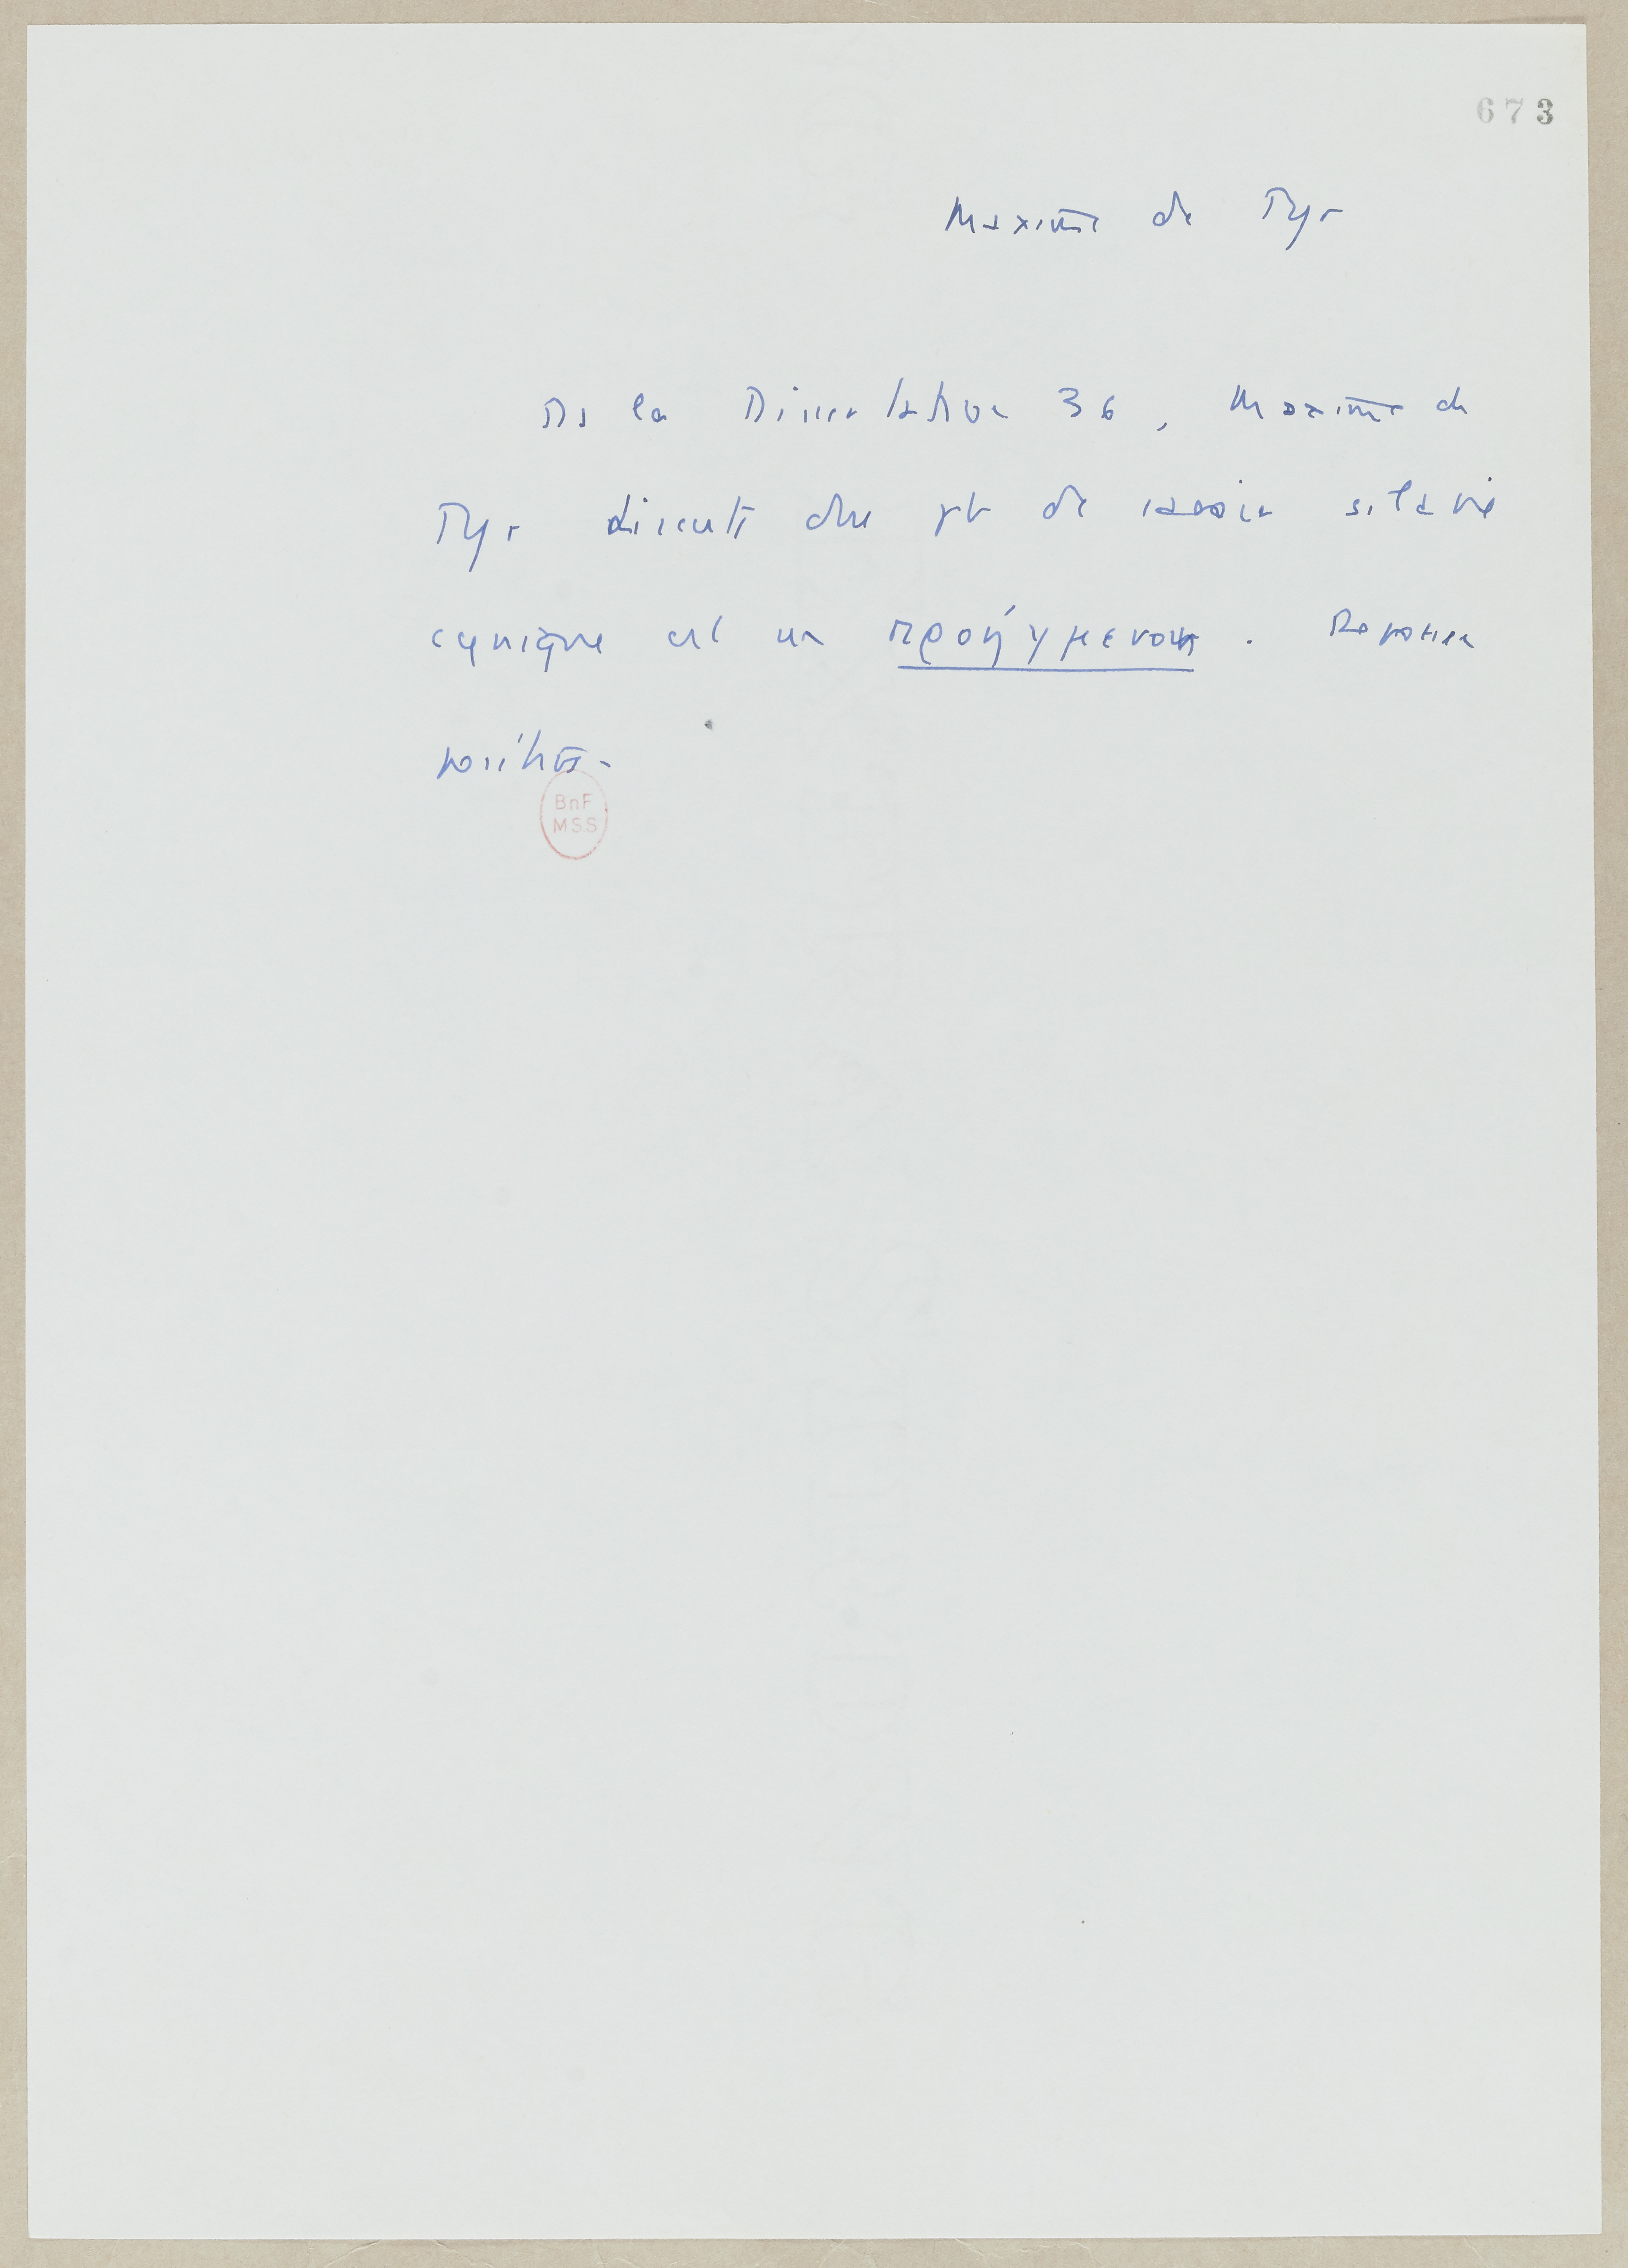 673
Maxime de Tyr
Ds la Dissertation 36, Maxime de
Tyr discute du pb de savoir si la vie
cynique est un προήγμενον. Réponse
positive.
BnF
MSS